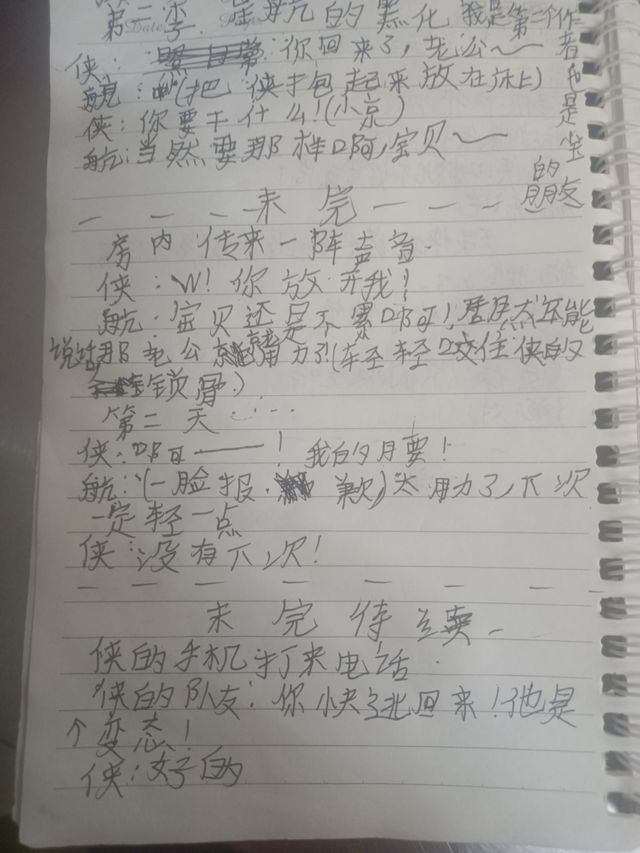 第二季. 的黑化 我是第二个作者也是宝的朋友
侠: 你回来了,老公~
航: (把侠手包起来放在床上)
侠:你要干什么!(小哀)
航:当然要那样啊,宝贝~
— — — 未完 — — — —
房内传来一阵声音.
侠:W!你放开我!
航:宝贝还是不累啊!居然还能
说话那老公就用力了(轻轻咬住侠的
锁骨)
第二天.....
侠:啊——! 我的月要!
航:(一脸报.歉)太用力了,下次
一定轻一点
侠:没有下次!
— — — — — — — —
未完待续.
侠的手机打来电话.
侠的队友:你快逃回来!他是
个变态!
侠:好的